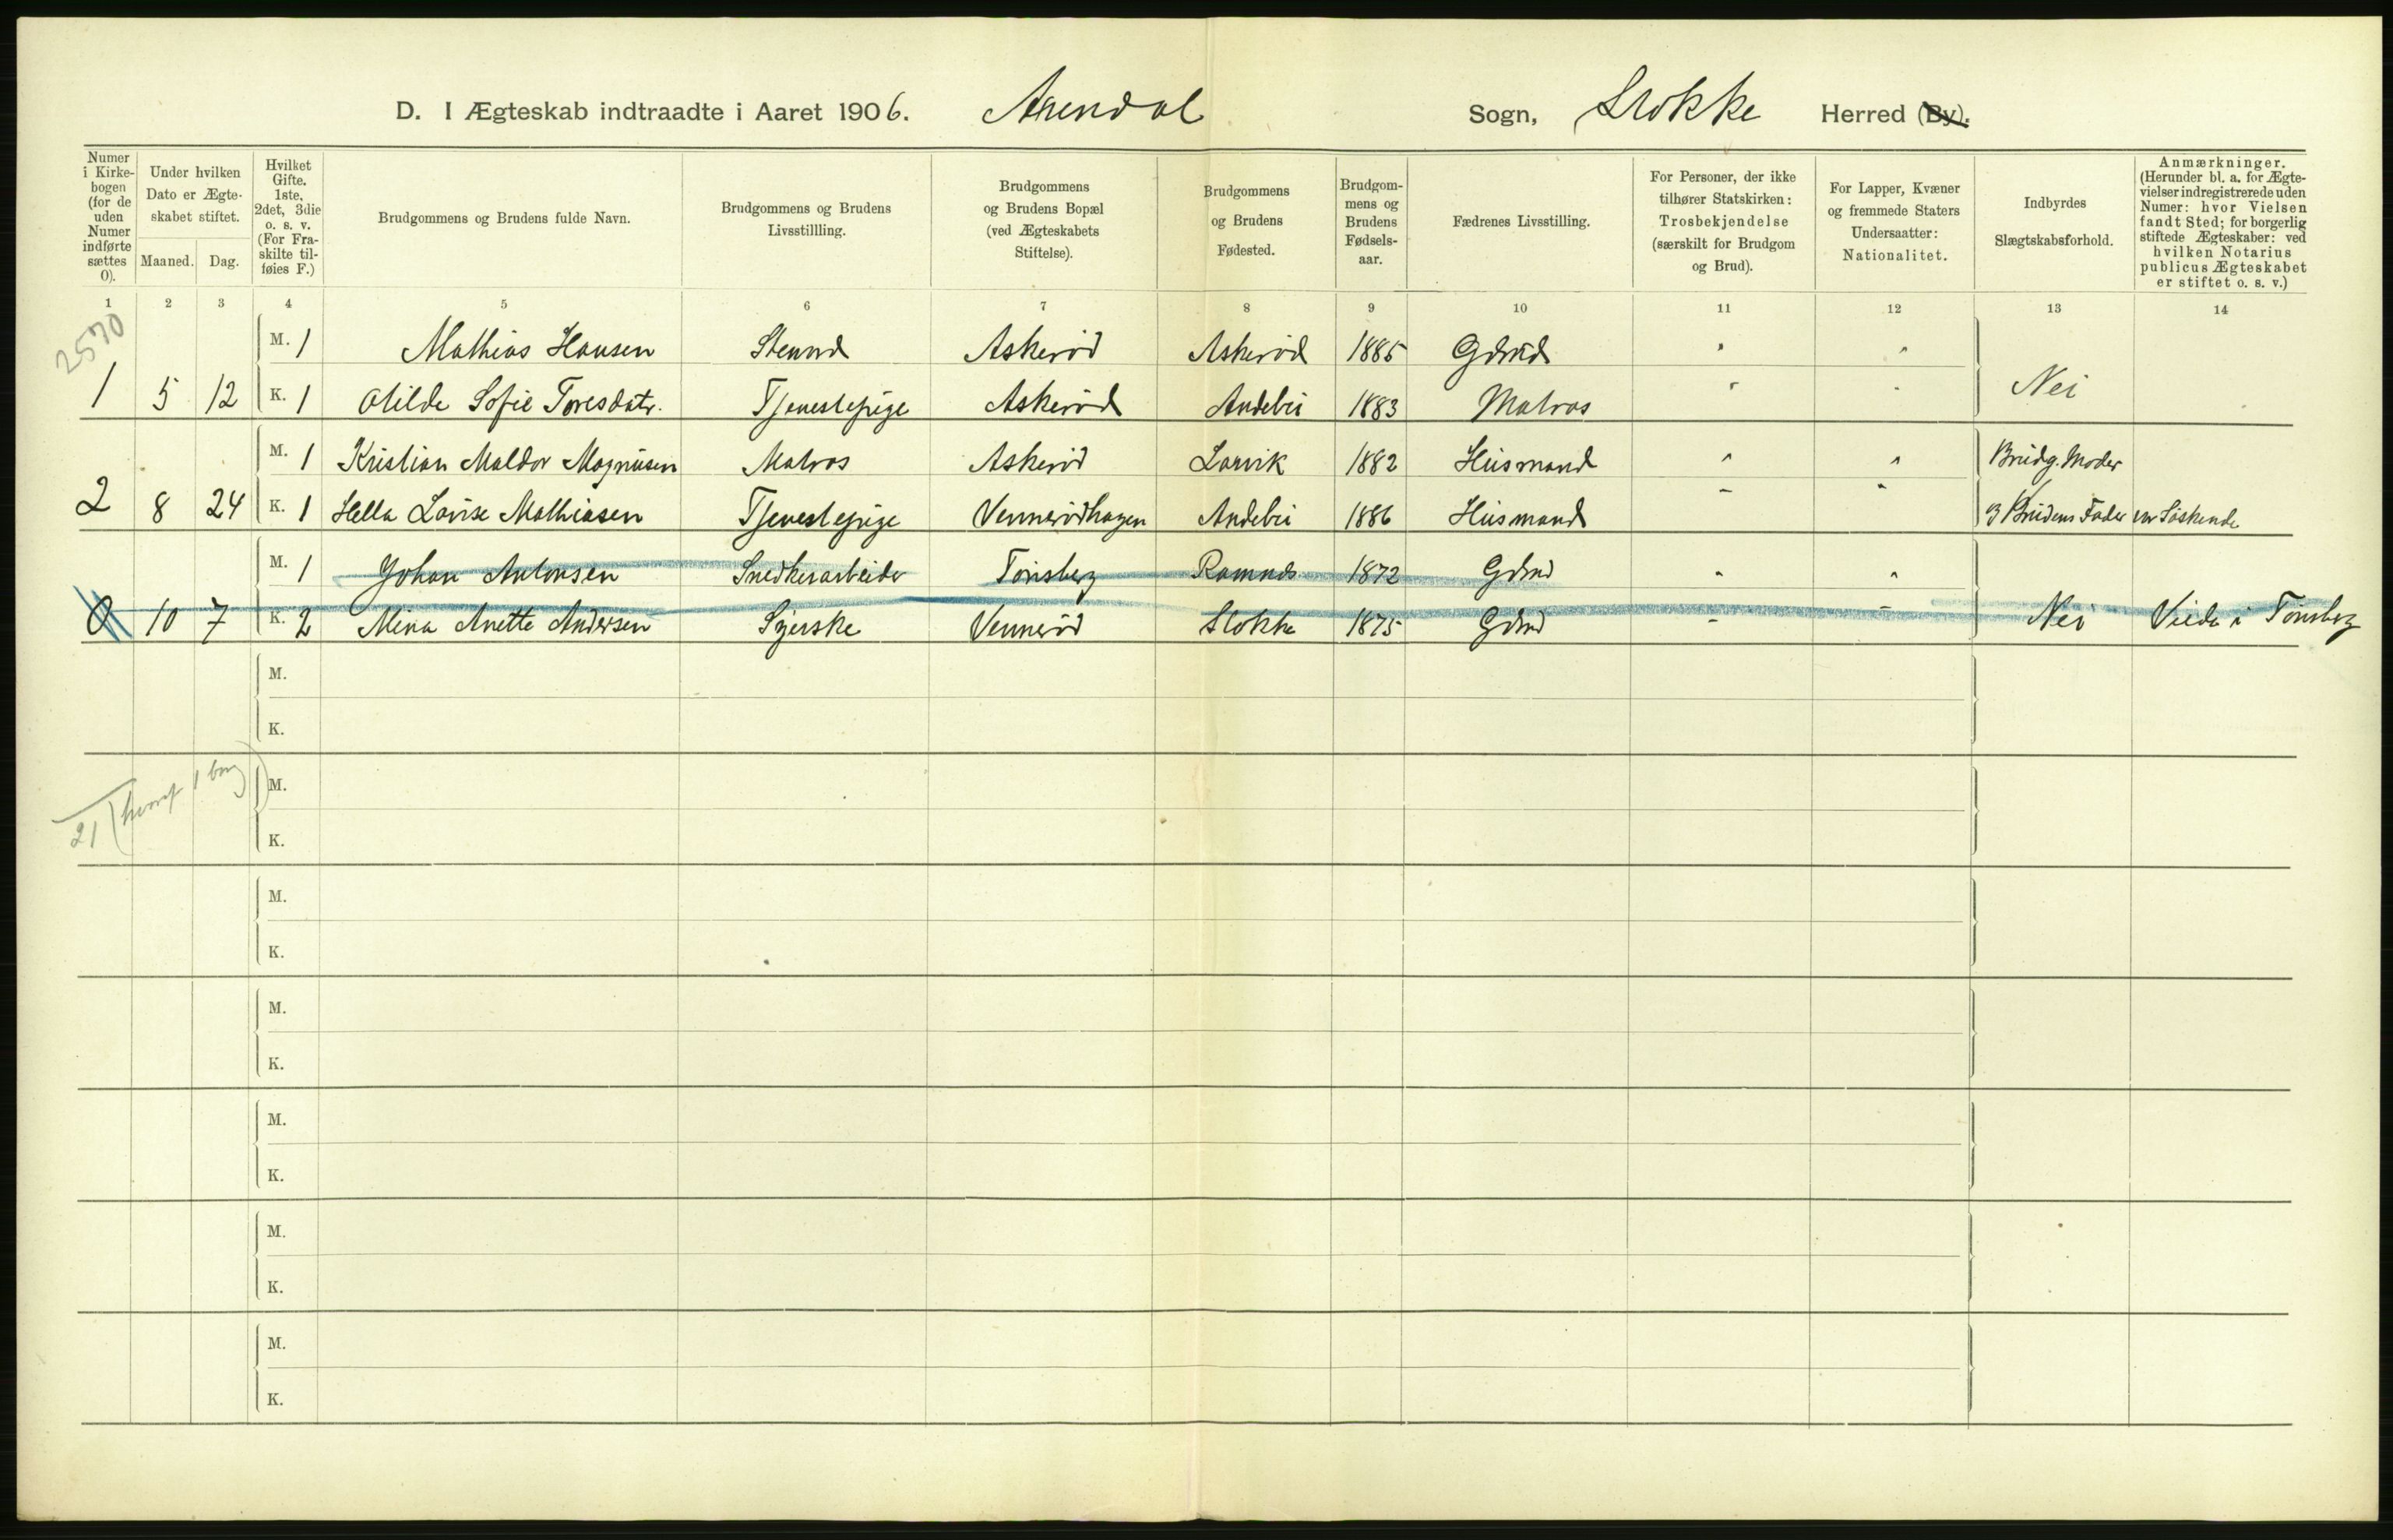 D. I Ægteskab indtraadte i Aaret 1906. Arendal Sogn, Stokke Herred (By).
Numer i Kirke-bogen (for de uden Numer indførte sættes 0).
Under hvilken Dato er Ægte-skabet stiftet.
Maaned. Dag.
Hvilket Gifte. 1ste, 2det, 3die o. s. v. (For Fra-skilte til-føies F.)
Brudgommens og Brudens fulde Navn.
Brudgommens og Brudens Livsstillling.
Brudgommens og Brudens Bopæl (ved Ægteskabets Stiftelse).
Brudgommens og Brudens Fødested.
Brudgom-mens og Brudens Fødsels-aar.
Fædrenes Livsstilling.
For Personer, der ikke tilhører Statskirken: Trosbekjendelse (særskilt for Brudgom og Brud).
For Lapper, Kvæner og fremmede Staters Undersaatter: Nationalitet.
Indbyrdes Slægtskabsforhold.
Anmærkninger. (Herunder bl. a. for Ægte-vielser indregistrerede uden Numer: hvor Vielsen fandt Sted; for borgerlig stiftede Ægteskaber: ved hvilken Notarius publicus Ægteskabet er stiftet o. s. v.)
1 2 3 4 5 6 7 8 9 10 11 12 13 14
2570
M. 1 Mathias Hansen Askerød Askerød 1885 Gdmd " "
1 5 12 K. 1 Otilde Sofie Toresdatr. Tjenestepige Askerød Andebu 1883 Matros " " Nei
M. 1 Kristian Maldor Magnusen Matros Askerød Larvik 1882 Husmand " " Brudg. Moder
2 8 24 K. 1 Hella Lovise Mathiasen Tjenestepige Vennerødhagen Andebu 1886 Husmand " " og Brudens Fader var Søskende
M. 1 Johan Antonsen Snedkerarbeider Tønsberg Ramnæs 1872 Gdmd " "
0 10 7 K. 2 Mina Anette Andersen Syerske Vennerød Stokke 1875 Gdmd " " Nei Viede i Tønsberg
M.
K.
21 1
M.
K.
M.
K.
M.
K.
M.
K.
M.
K.
M.
K.